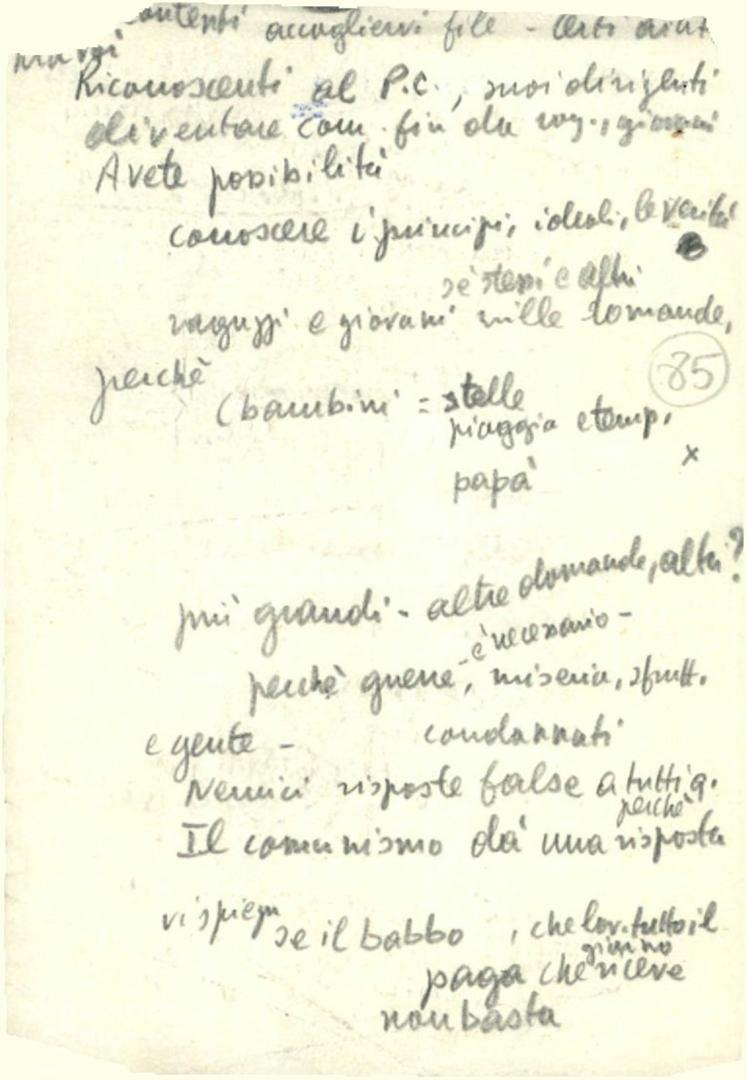 contenti accoglievi file - Certi aiut
Riconoscenti al P.C., suoi dirigenti
diventare com. fin da rag., giovani
Avete possibilità
conoscere i principi, ideali, le verità
sè stessi e altri
ragazzi e giovani mille domande,
perchè
85
(bambini = stelle
pioggia e temp.
x
papà
più grandi - altre domande, altri?
è necessario -
perchè guerre, miseria, sfrutt.
e gente - condannati
Nemici risposte false a tutti q.
perchè
Il comunismo dà una risposta
vi spiega se il babbo, che lav. tutto il
giorno
paga che riceve
non basta